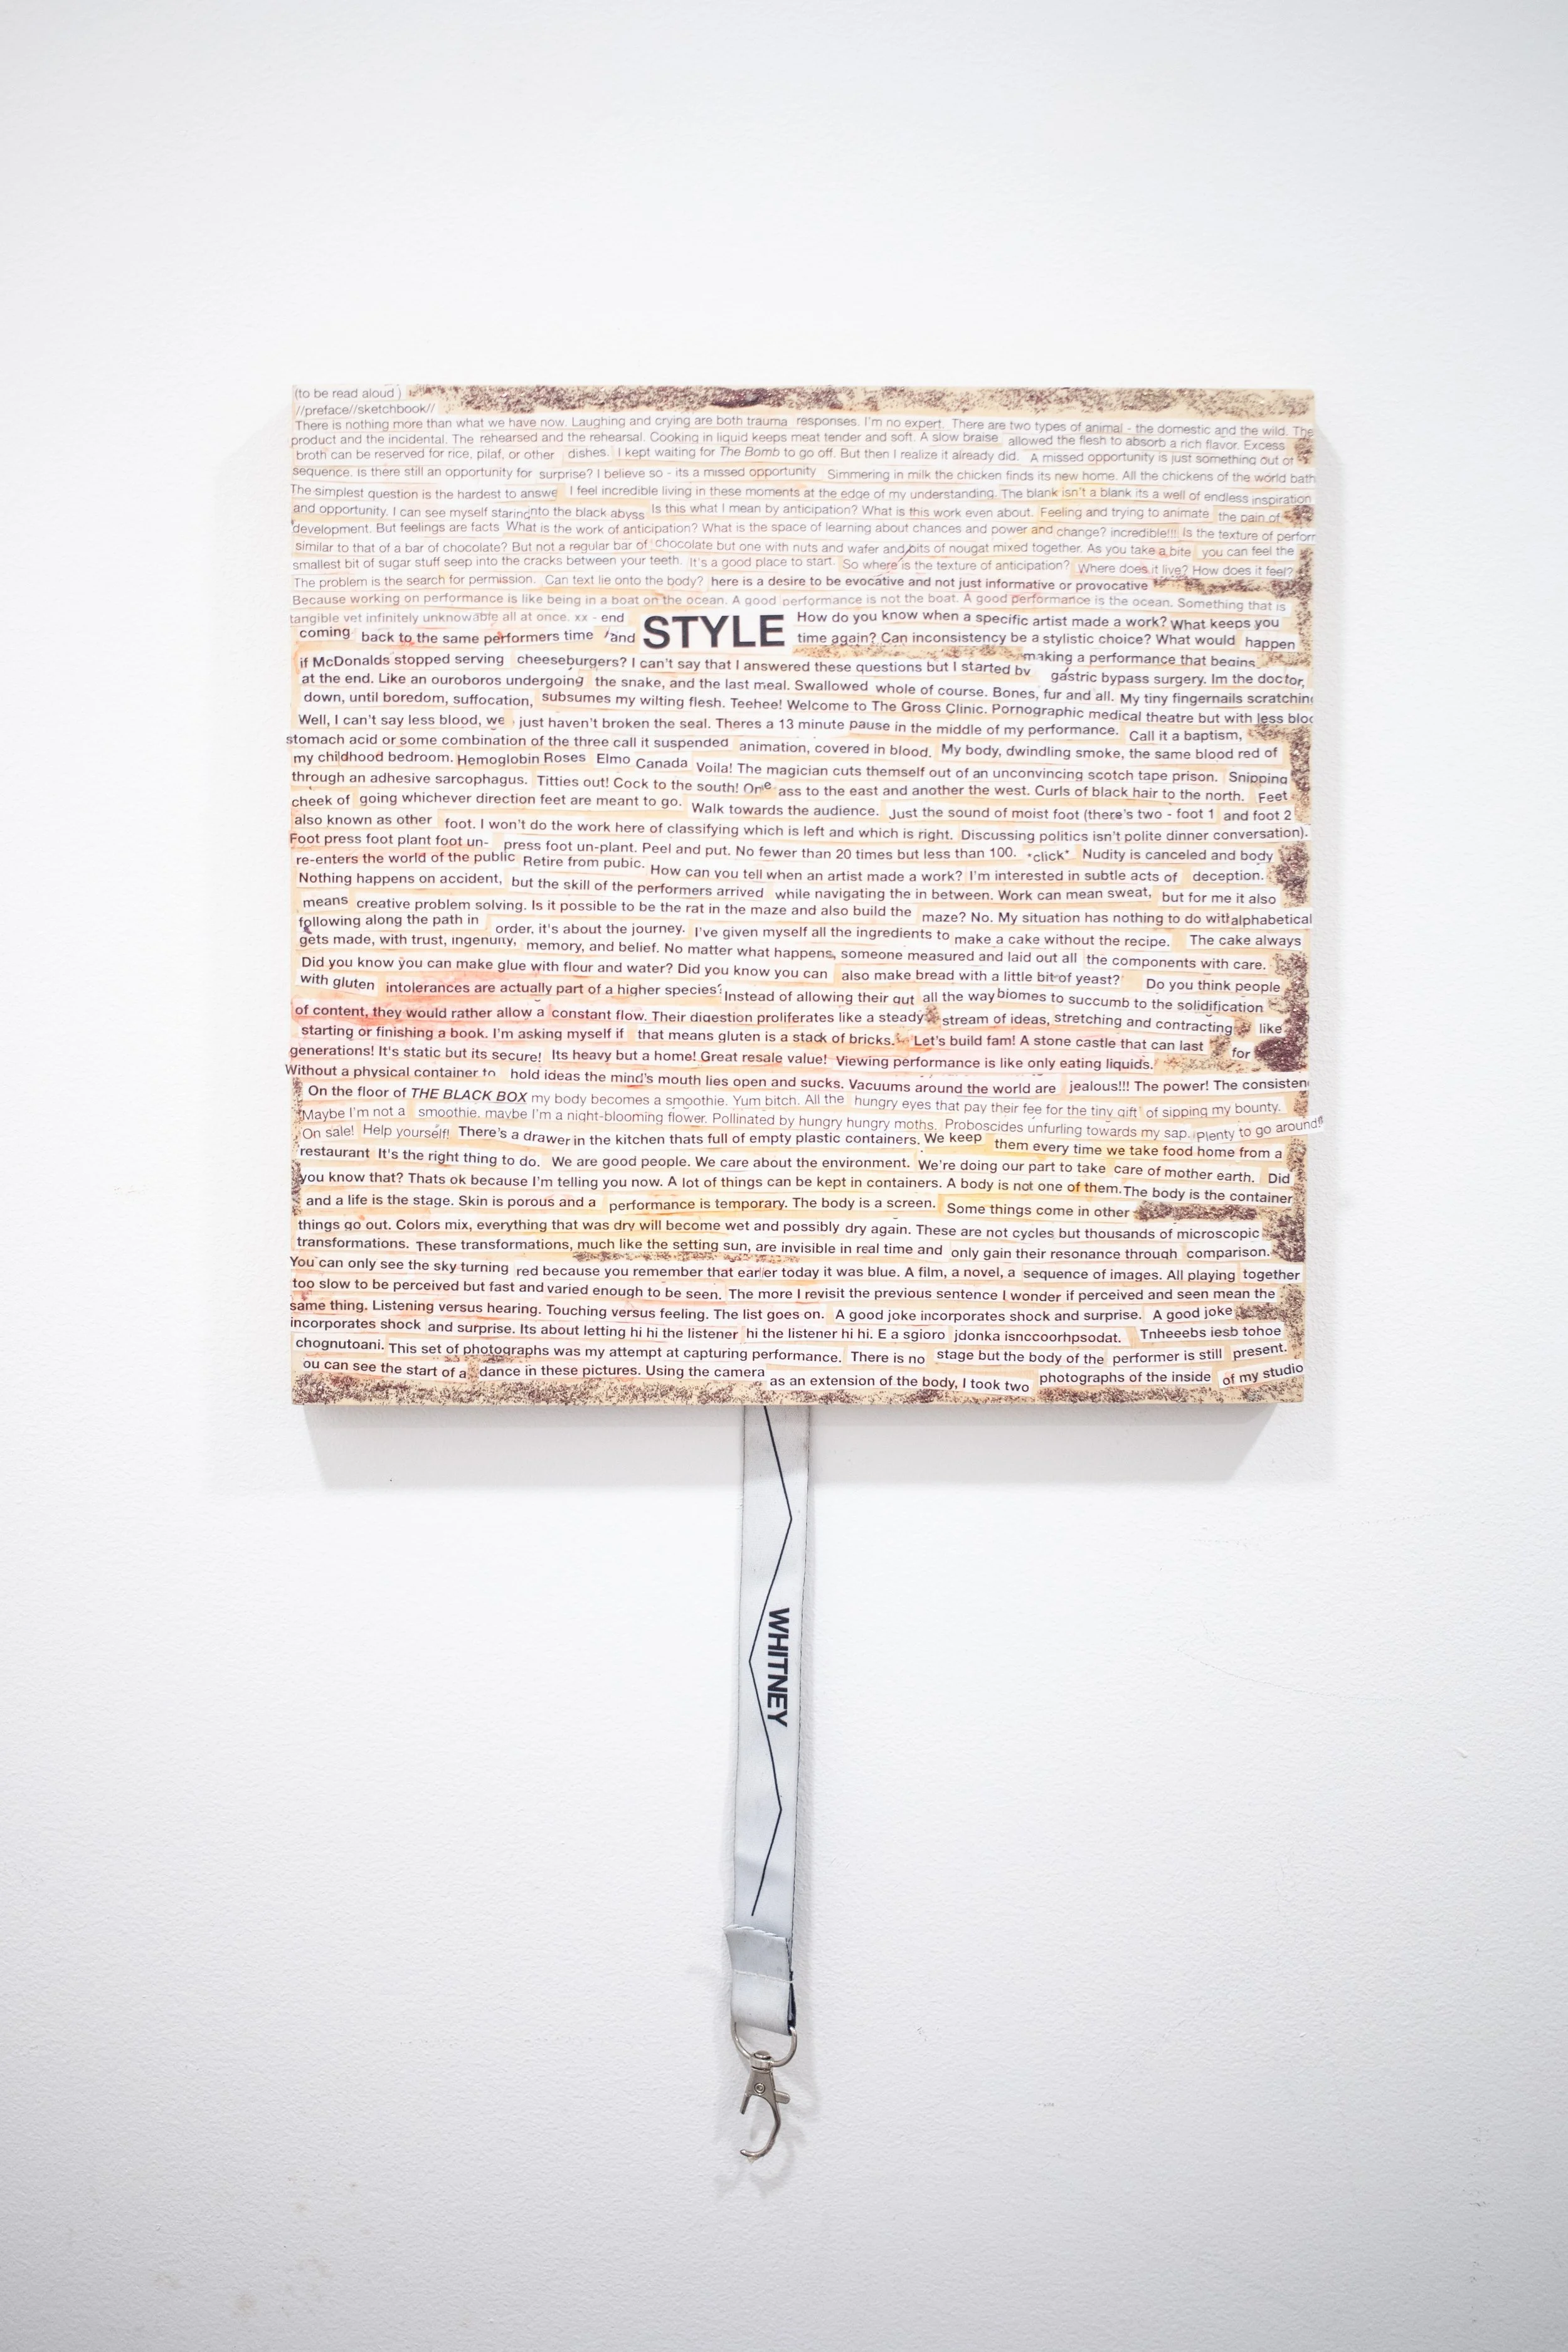 (to be read aloud )
//preface//sketchbook//
There is nothing more than what we have now. Laughing and crying are both trauma responses. I'm no expert. There are two types of animal - the domestic and the wild. The
product and the incidental. The rehearsed and the rehearsal. Cooking in liquid keeps meat tender and soft. A slow braise allowed the flesh to absorb a rich flavor. Excess
broth can be reserved for rice, pilaf, or other dishes. I kept waiting for The Bomb to go off. But then I realize it already did. A missed opportunity is just something out of
sequence. Is there still an opportunity for surprise? I believe so - its a missed opportunity Simmering in milk the chicken finds its new home. All the chickens of the world bath
The simplest question is the hardest to answe I feel incredible living in these moments at the edge of my understanding. The blank isn't a blank its a well of endless inspiration
and opportunity. I can see myself staring nto the black abyss Is this what I mean by anticipation? What is this work even about. Feeling and trying to animate the pain of
development. But feelings are facts What is the work of anticipation? What is the space of learning about chances and power and change? incredible!!! Is the texture of perforr
similar to that of a bar of chocolate? But not a regular bar of chocolate but one with nuts and wafer and bits of nougat mixed together. As you take a bite you can feel the
smallest bit of sugar stuff seep into the cracks between your teeth. It's a good place to start. So where is the texture of anticipation? Where does it live? How does it feel?
The problem is the search for permission. Can text lie onto the body? here is a desire to be evocative and not just informative or provocative
Because working on performance is like being in a boat on the ocean. A good performance is not the boat. A good performance is the ocean. Something that is
tangible yet infinitely unknowable all at once. xx - end STYLE How do you know when a specific artist made a work? What keeps you
coming back to the same performers time and time again? Can inconsistency be a stylistic choice? What would happen
if McDonalds stopped serving cheeseburgers? I can't say that I answered these questions but I started by making a performance that begins
at the end. Like an ouroboros undergoing the snake, and the last meal. Swallowed whole of course. Bones, fur and all. gastric bypass surgery. Im the doctor,
down, until boredom, suffocation, subsumes my wilting flesh. Teehee! Welcome to The Gross Clinic. Pornographic medical theatre but with My tiny fingernails scratching
Well, I can't say less blood, we just haven't broken the seal. Theres a 13 minute pause in the middle of my performance. less bloo
stomach acid or some combination of the three call it suspended animation, covered in blood. Call it a baptism,
my childhood bedroom. Hemoglobin Roses Elmo Canada Voila! The magician cuts themself out of an unconvincing scotch tape prison. My body, dwindling smoke, the same blood red of
through an adhesive sarcophagus. Titties out! Cock to the south! One ass to the east and another the west. Curls of black hair to the north. Snipping
cheek of going whichever direction feet are meant to go. Walk towards the audience. Just the sound of moist foot (there's two - foot 1 Feet
also known as other foot. I won't do the work here of classifying which is left and which is right. Discussing politics isn't polite dinner conversation). and foot 2
Foot press foot plant foot un- press foot un-plant. Peel and put. No fewer than 20 times but less than 100. *click* Nudity is canceled and body
re-enters the world of the public Retire from pubic. How can you tell when an artist made a work? I'm interested in subtle acts of deception.
Nothing happens on accident, but the skill of the performers arrived while navigating the in between. Work can mean sweat, but for me it also
means creative problem solving. Is it possible to be the rat in the maze and also build the maze? No. My situation has nothing to do with alphabetical
following along the path in order, it's about the journey. I've given myself all the ingredients to make a cake without the recipe. The cake always
gets made, with trust, ingenuity, memory, and belief. No matter what happens, someone measured and laid out all the components with care.
Did you know you can make glue with flour and water? Did you know you can also make bread with a little bit of yeast? Do you think people
with gluten intolerances are actually part of a higher species? Instead of allowing their gut all the way biomes to succumb to the solidification
of content, they would rather allow a constant flow. Their digestion proliferates like a steady stream of ideas, stretching and contracting like
starting or finishing a book. I'm asking myself if that means gluten is a stack of bricks. Let's build fam! A stone castle that can last for
generations! It's static but its secure! Its heavy but a home! Great resale value! Viewing performance is like only eating liquids.
Without a physical container to hold ideas the mind's mouth lies open and sucks. Vacuums around the world are jealous!!! The power! The consisten
On the floor of THE BLACK BOX my body becomes a smoothie. Yum bitch. All the hungry eyes that pay their fee for the tiny gift of sipping my bounty.
Maybe I'm not a smoothie, maybe I'm a night-blooming flower. Pollinated by hungry hungry moths. Proboscides unfurling towards my sap. Plenty to go around!!
On sale! Help yourself! There's a drawer in the kitchen thats full of empty plastic containers. We keep them every time we take food home from a
restaurant It's the right thing to do. We are good people. We care about the environment. We're doing our part to take care of mother earth. Did
you know that? Thats ok because I'm telling you now. A lot of things can be kept in containers. A body is not one of them. The body is the container
and a life is the stage. Skin is porous and a performance is temporary. The body is a screen. Some things come in other
things go out. Colors mix, everything that was dry will become wet and possibly dry again. These are not cycles but thousands of microscopic
transformations. These transformations, much like the setting sun, are invisible in real time and only gain their resonance through comparison.
You can only see the sky turning red because you remember that earlier today it was blue. A film, a novel, a sequence of images. All playing together
too slow to be perceived but fast and varied enough to be seen. The more I revisit the previous sentence I wonder if perceived and seen mean the
same thing. Listening versus hearing. Touching versus feeling. The list goes on. A good joke incorporates shock and surprise. A good joke
incorporates shock and surprise. Its about letting hi hi the listener hi the listener hi hi. E a sgioro jdonka isnccoorhpsodat. Tnheeebs iesb tohoe
chognutoani. This set of photographs was my attempt at capturing performance. There is no stage but the body of the performer is still present.
ou can see the start of a dance in these pictures. Using the camera as an extension of the body, I took two photographs of the inside of my studio
WHITNEY